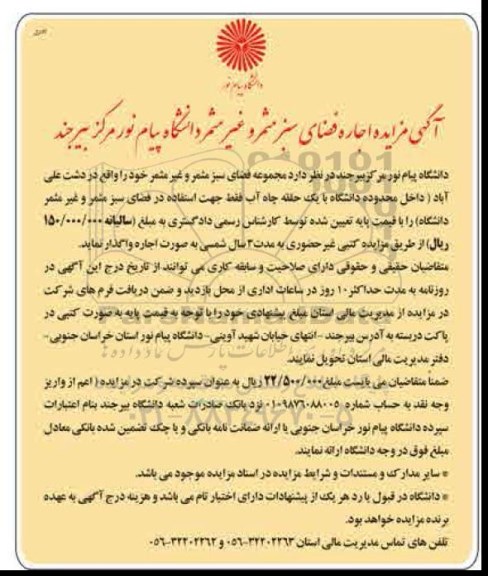 دانشگاه پیام نور
آگهی مزایده اجاره فضای سبز مثمر و غیر مثمر دانشگاه پیام نور مرکز بیرجند
دانشگاه پیام نور مرکز بیرجند در نظر دارد مجموعه فضای سبز مثمر و غیر مثمر خود را واقع در دشت علی
آباد ( داخل محدوده دانشگاه با یک حلقه چاه آب فقط جهت استفاده در فضای سبز مثمر و غیر مثمر
دانشگاه) را با قیمت پایه تعیین شده توسط کارشناس رسمی دادگستری به مبلغ (سالیانه ۱۵۰/۰۰۰/۰۰۰
ریال) از طریق مزایده کتبی غیرحضوری به مدت ۲ سال شمسی به صورت اجاره واگذار نماید.
متقاضیان حقیقی و حقوقی دارای صلاحیت و سابقه کاری می توانند از تاریخ درج این آگهی در
روزنامه به مدت حداکثر ۱۰ روز در ساعات اداری از محل بازدید و ضمن دریافت فرم های شرکت
در مزایده از مدیریت مالی استان مبلغ پیشنهادی خود را با توجه به قیمت پایه به صورت کتبی در
پاکت دربسته به آدرس بیرجند -انتهای خیابان شهید آوینی- دانشگاه پیام نور استان خراسان جنوبی-
دفتر مدیریت مالی استان تحویل نمایند.
ضمناً متقاضیان می بایست مبلغ ۲۲/۵۰۰/۰۰۰ ریال به عنوان سپرده شرکت در مزایده ( اعم از واریز
وجه نقد به حساب شماره ۰۱۰۹۸۷۶۰۸۸۰۰۵ نزد بانک صادرات شعبه دانشگاه بیرجند بنام اعتبارات
سپرده دانشگاه پیام نور خراسان جنوبی یا ارائه ضمانت نامه بانکی و یا چک تضمین شده بانکی معادل
مبلغ فوق در وجه دانشگاه ارائه نمایند.
* سایر مدارک و مستندات و شرایط مزایده در اسناد مزایده موجود می باشد.
* دانشگاه در قبول یا رد هر یک از پیشنهادات دارای اختیار تام می باشد و هزینه درج آگهی به عهده
برنده مزایده خواهد بود.
تلفن های تماس مدیریت مالی استان ۳۲۲۰۲۲۶۳-۰۵۶ و ۳۲۲۰۲۲۶۲-۰۵۶